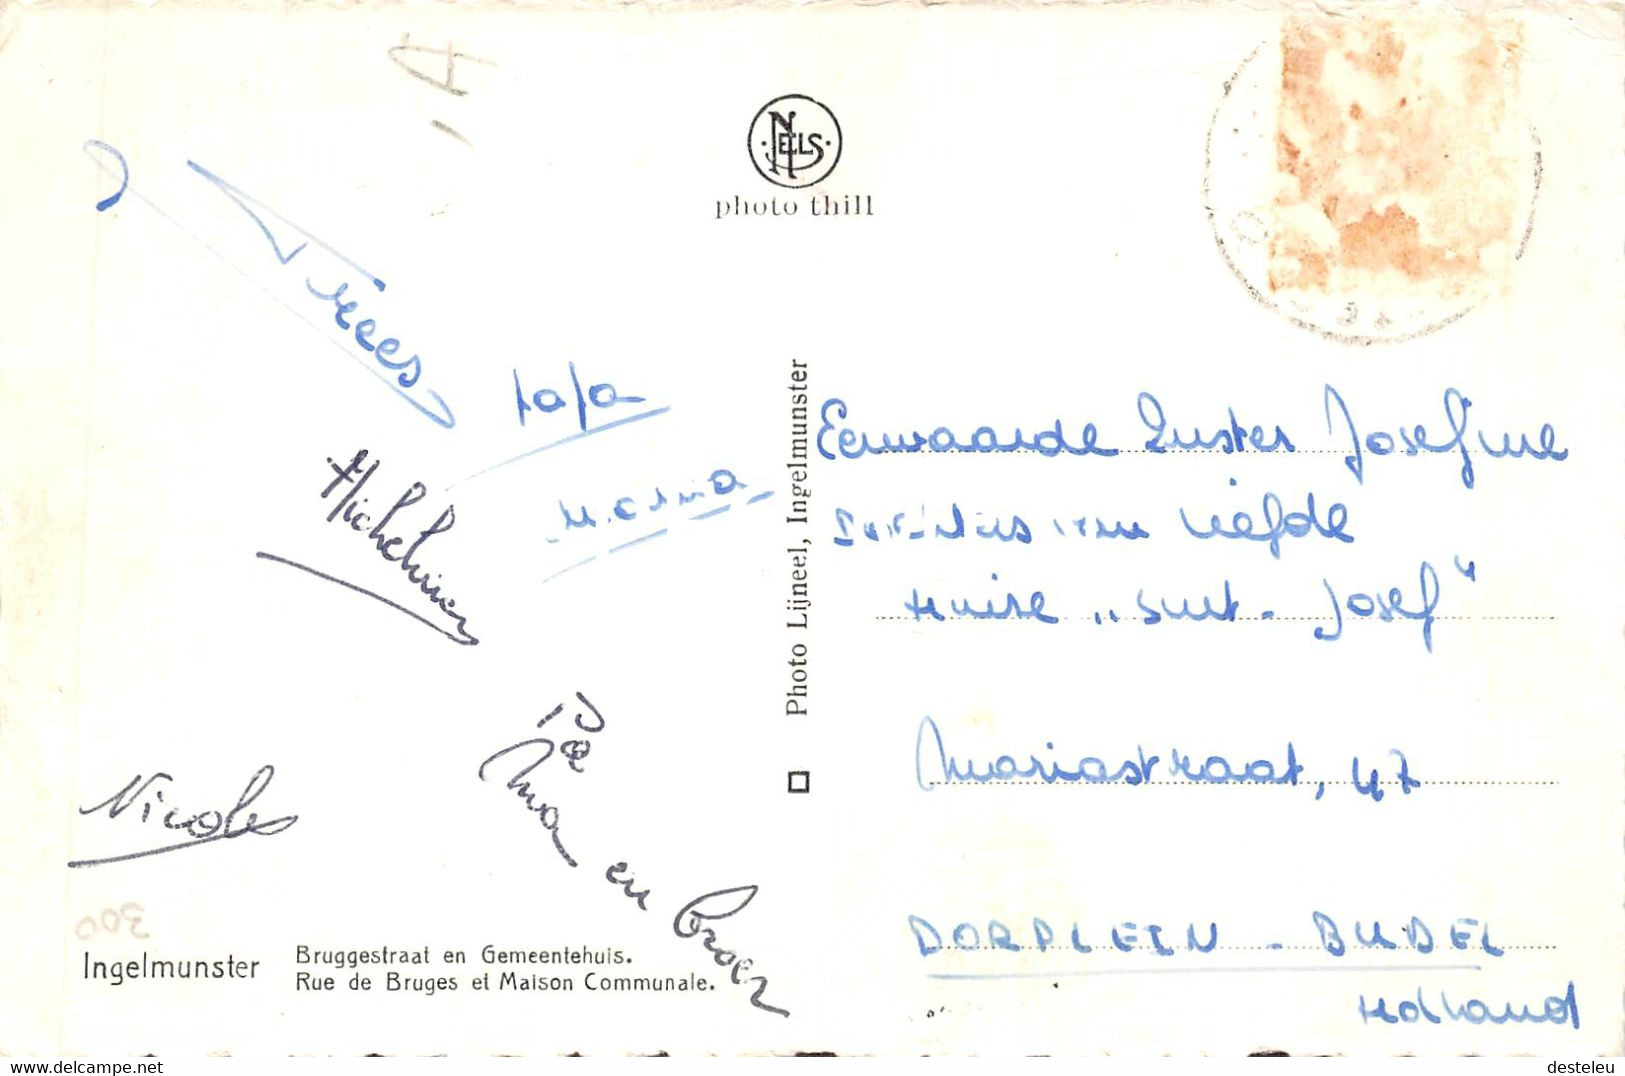 1A
NELS
photo thill
Trees
papa
mama
Micheline
Nicole
Pa
Ma en Broer
300
Ingelmunster
Bruggestraat en Gemeentehuis.
Rue de Bruges et Maison Communale.
Photo Lijneel, Ingelmunster
Eerwaarde Zuster Josefine
van liefde
Huize „Sint-Josef"
Mariastraat, 47
DORPLEIN - BUDEL
Holland
desteleu